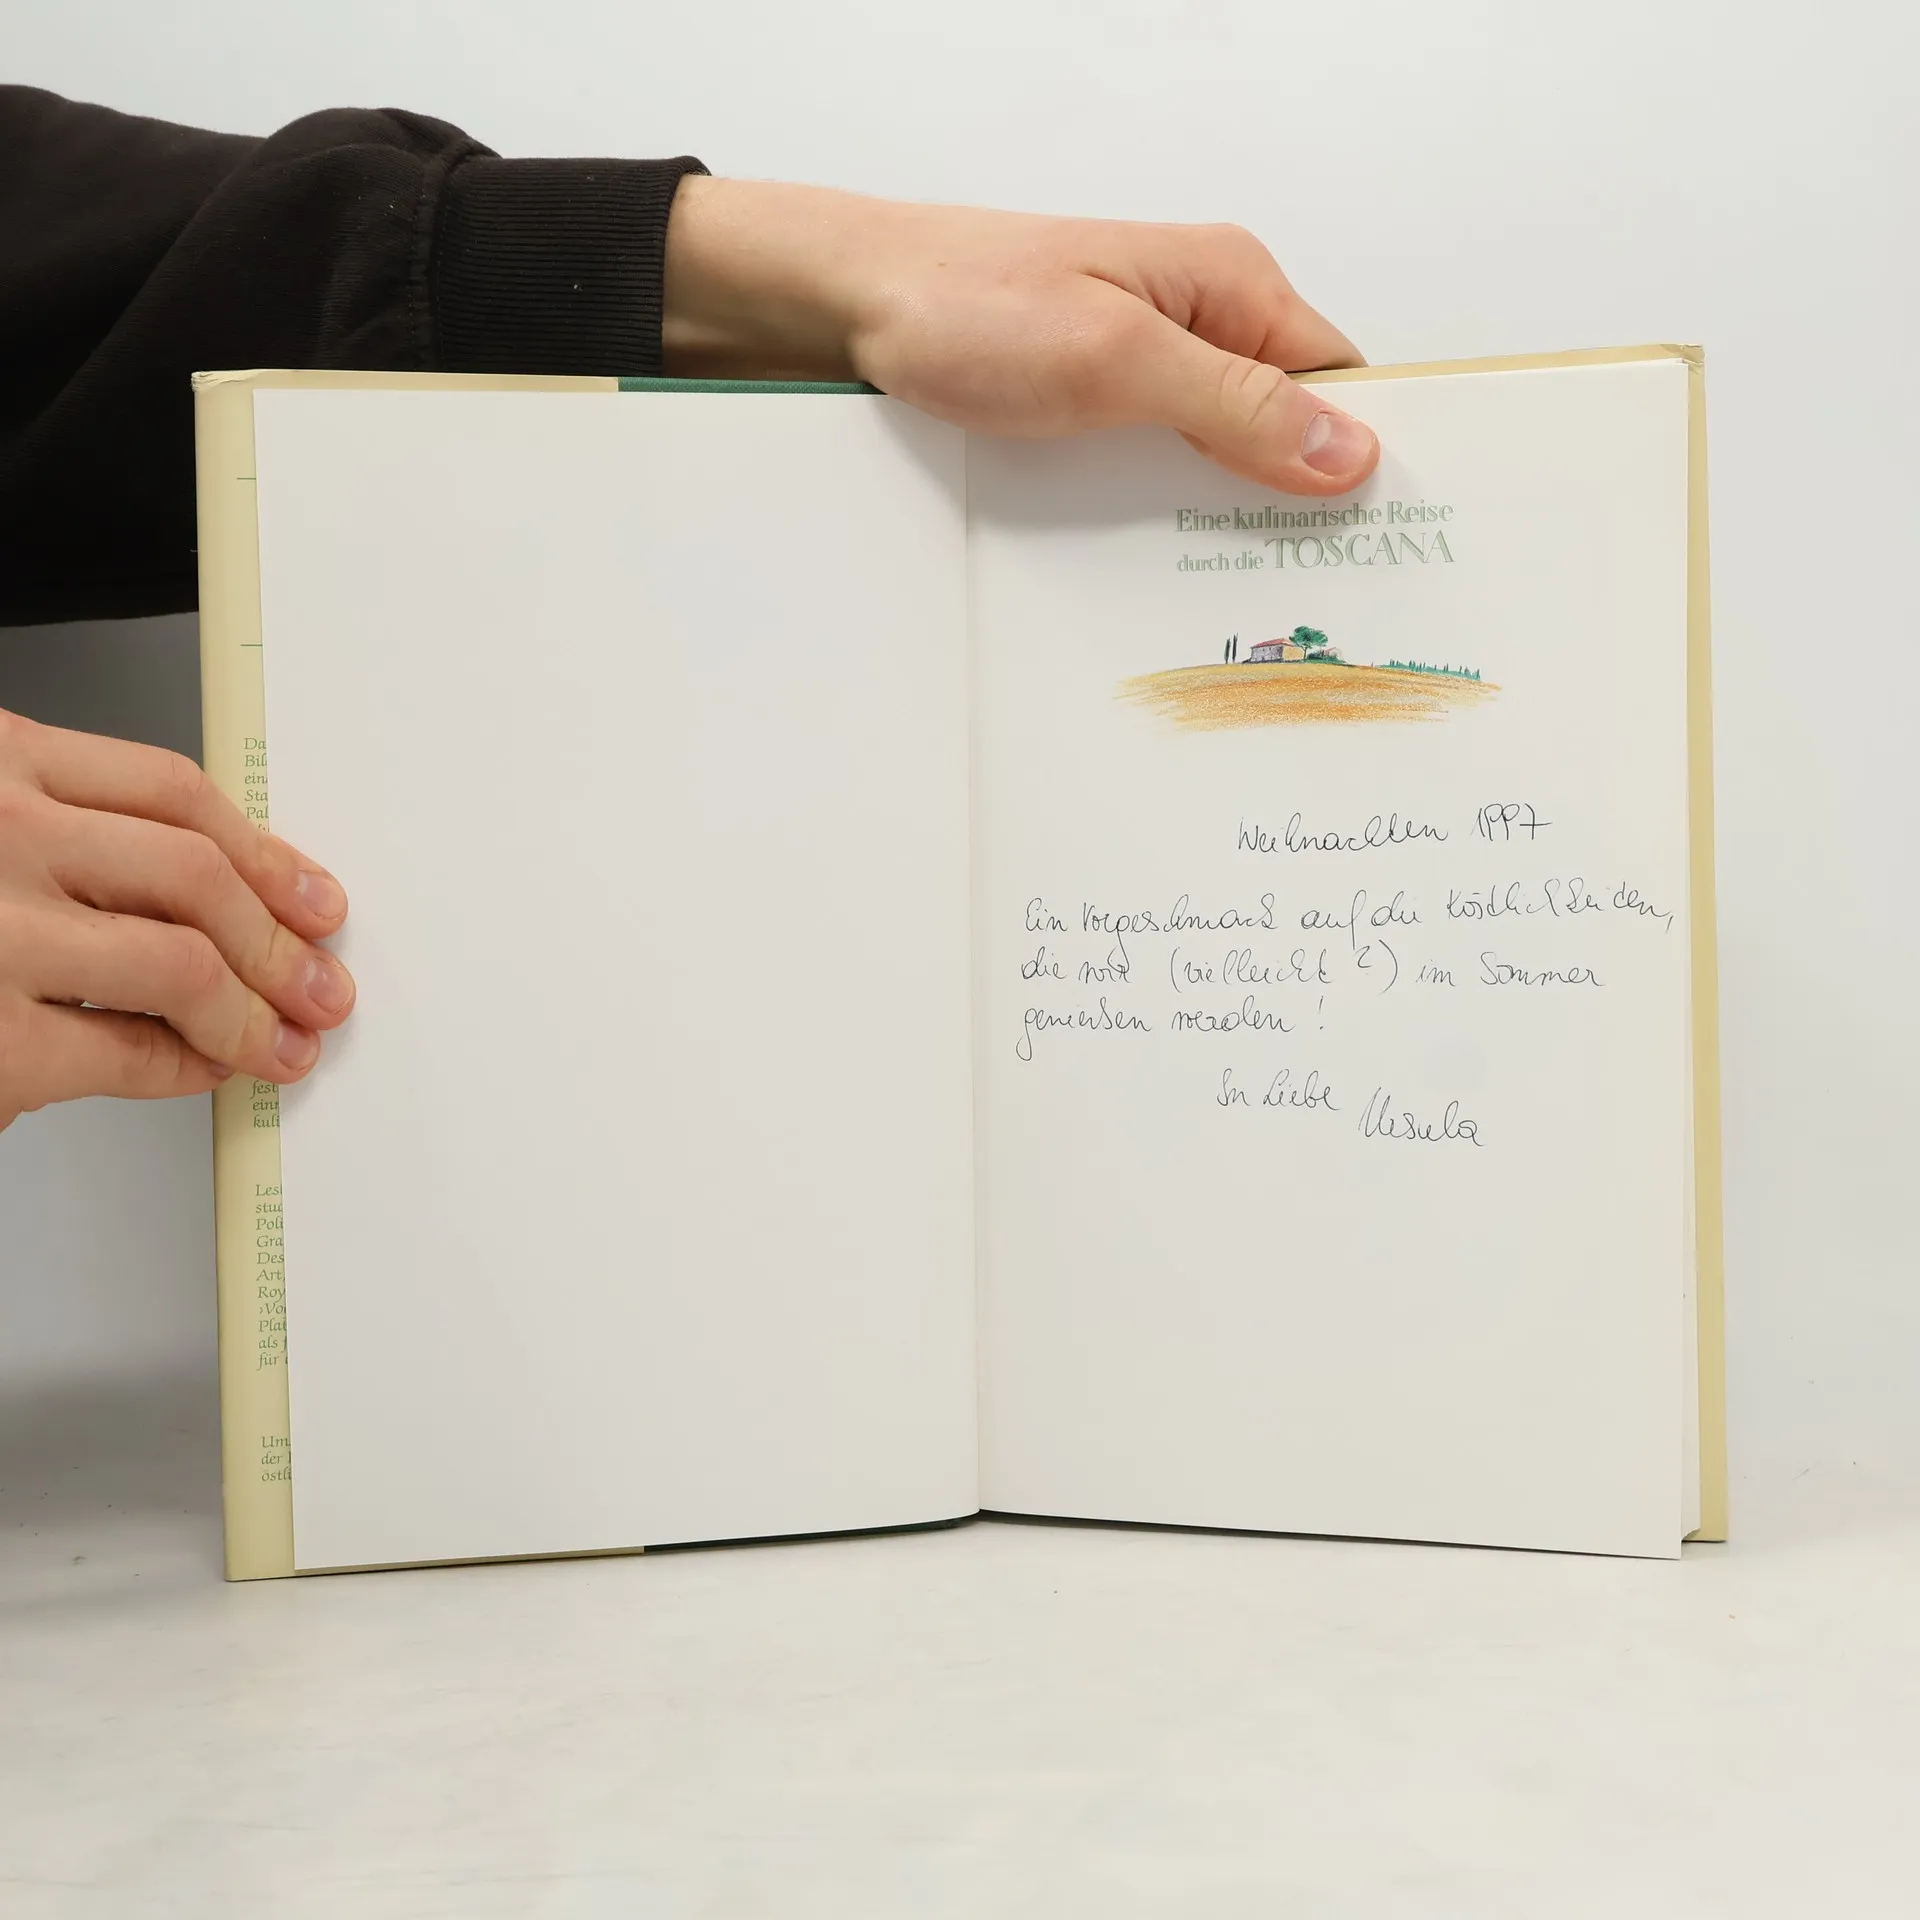 Da
Bil
ein
Sta
Pal
fest
einr
kuli
Lesl
stud
Poli
Gra
Des
Art,
Roy
›Vo
Plat
als f
für
Um
der
östli
Eine kulinarische Reise
durch die TOSCANA
Weihnachten 1997
Ein Vorgeschmack auf die Köstlichkeiten,
die wir (vielleicht ?) im Sommer
genießen werden !
In Liebe Ursula